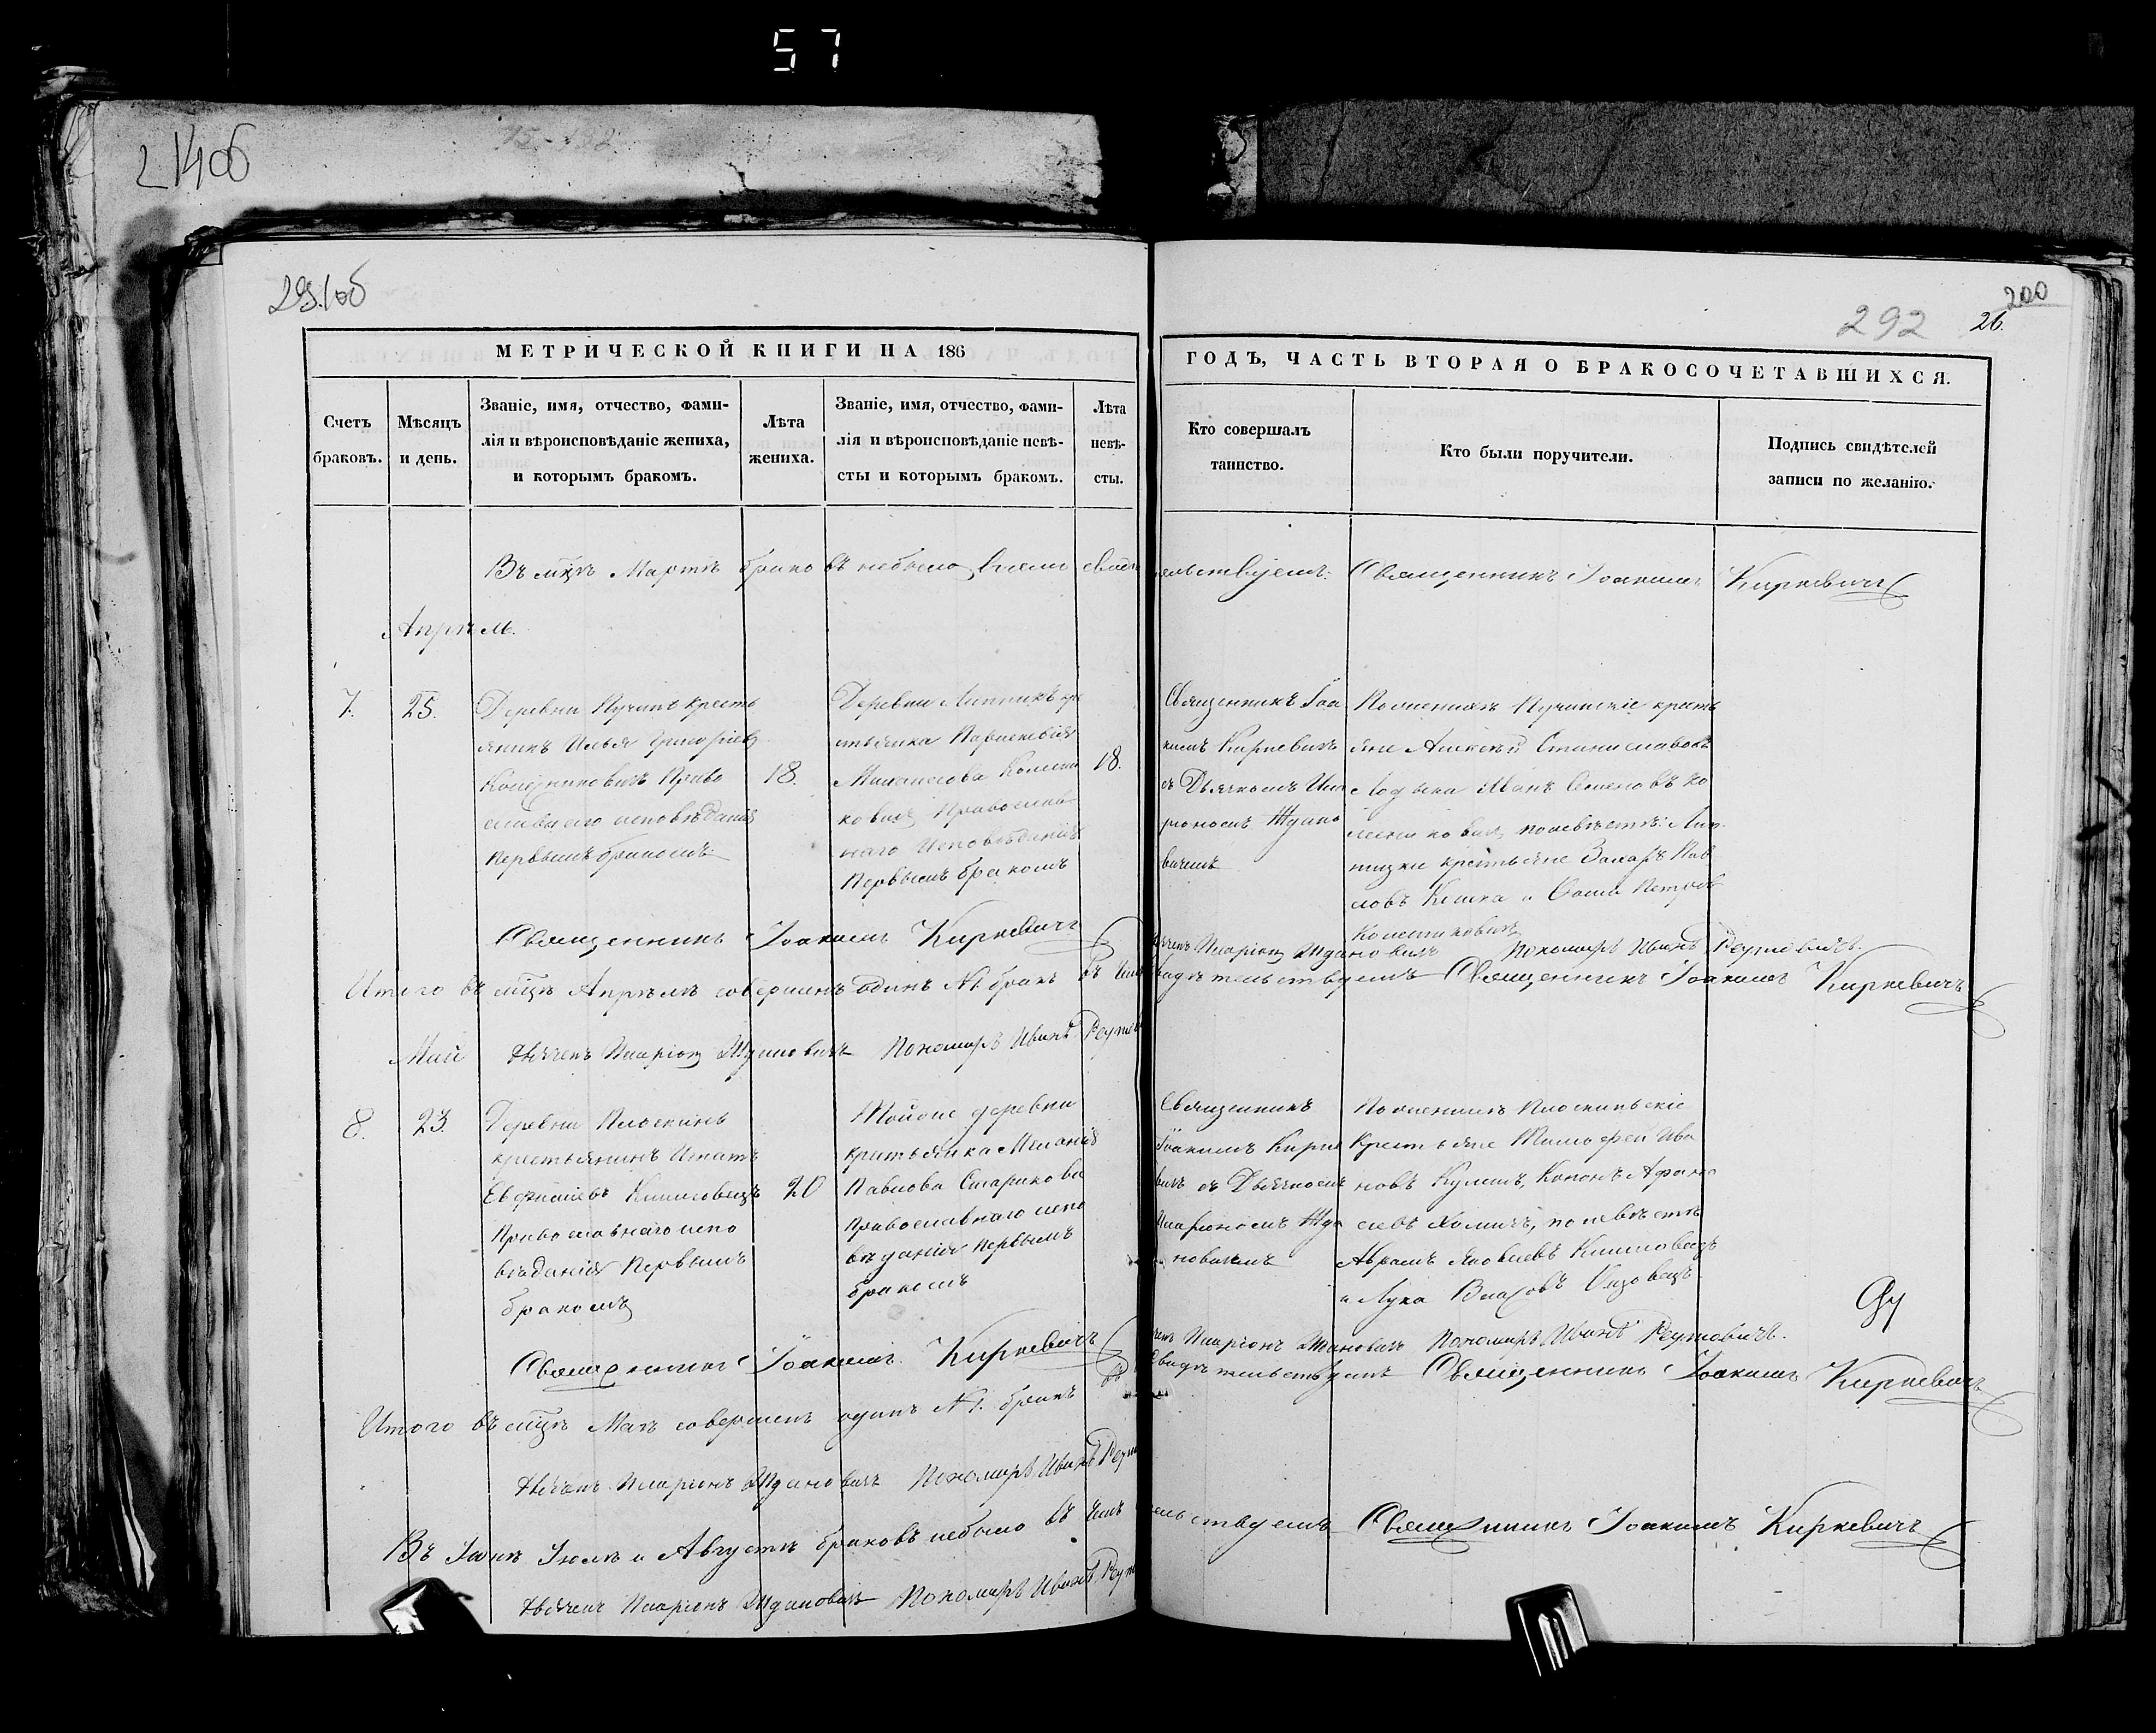 57
291об
292
26.
200
МЕТРИЧЕСКОЙ КНИГИ НА 186
ГОДЪ, ЧАСТЬ ВТОРАЯ О БРАКОСОЧЕТАВШИХСЯ.
Счетъ
браковъ.
Мѣсяцъ
и день.
Званіе, имя, отчество, фами-
лія и вѣроисповѣданіе жениха,
и которымъ бракомъ.
Лѣта
жениха.
Званіе, имя, отчество, фами-
лія и вѣроисповѣданіе невѣ-
сты и которымъ бракомъ.
Лѣта
невѣ-
сты.
Кто совершалъ
таинство.
Кто были поручители.
Подпись свидѣтелей
записи по желанію.
Въ мцѣ Мартѣ браковъ небыло свидѣтельствуемъ: Священникъ Іоакимъ Киркевичъ
Апрѣль.
7.
25.
Деревни Пучинъ кресть
янинъ Илья Григоріевъ
Право
славнаго исповѣданія
первымъ бракомъ
18.
Деревни Липникъ кре
стьянка Параскевія
Михайлова
ковичъ Православ
наго Исповѣданія
Первымъ бракомъ
18.
Священникъ Іоа
кимъ Киркевичъ
съ Дьячкомъ Ила
ріономъ Ждано
вичемъ
По женихѣ Пучинскіе кресть
яне Алексѣй Станиславовъ
Семеновъ Ко
по невѣстѣ: Лип
крестьяне Захаръ Пав
ловъ и Петровъ
Священникъ Іоакимъ Киркевичъ
Дьячекъ Иларіонъ Ждановичъ Пономарь Иванъ Реутовичъ.
Итого въ мцѣ Апрѣлѣ совершенъ одинъ №1 бракъ въ чемъ свидѣтельствуемъ Священникъ Іоакимъ Киркевичъ
Май
Дьячекъ Иларіонъ Ждановичъ Пономарь Иванъ Реутов
8.
23.
Деревни Плоскинь
крестьянинъ Игнатъ
Климовецъ
Православнаго испо
вѣданія Первымъ
бракомъ
20
Тойже деревни
крестьянка Меланія
Павлова Старикова
Православнаго испо
вѣданія первымъ
бракомъ
Священникъ
Іоакимъ Кирке
вичъ съ Дьячкомъ
Иларіономъ Жда
новичемъ
По женихѣ Плоскинскіе
Крестьяне Тимофей Ива
новъ Кулешъ, Кононъ Афана
сіевъ Хомичъ, по невѣстѣ
Абрамъ Яковлевъ Климовецъ
и Лука Власовъ
Священникъ Іоакимъ Киркевичъ
Дьячекъ Иларіонъ Ждановичъ Пономарь Иванъ Реутовичъ.
Итого въ мцѣ Маѣ совершенъ одинъ №1. бракъ въ свидѣтельствуемъ Священникъ Іоакимъ Киркевичъ
Дьячекъ Иларіонъ Ждановичъ Пономарь Иванъ Реут
Въ Іюнѣ Іюлѣ и Августѣ браковъ небыло въ чемъ свидѣтельствуемъ Священникъ Іоакимъ Киркевичъ
Дьячекъ Иларіонъ Ждановичъ Пономарь Иванъ Реут